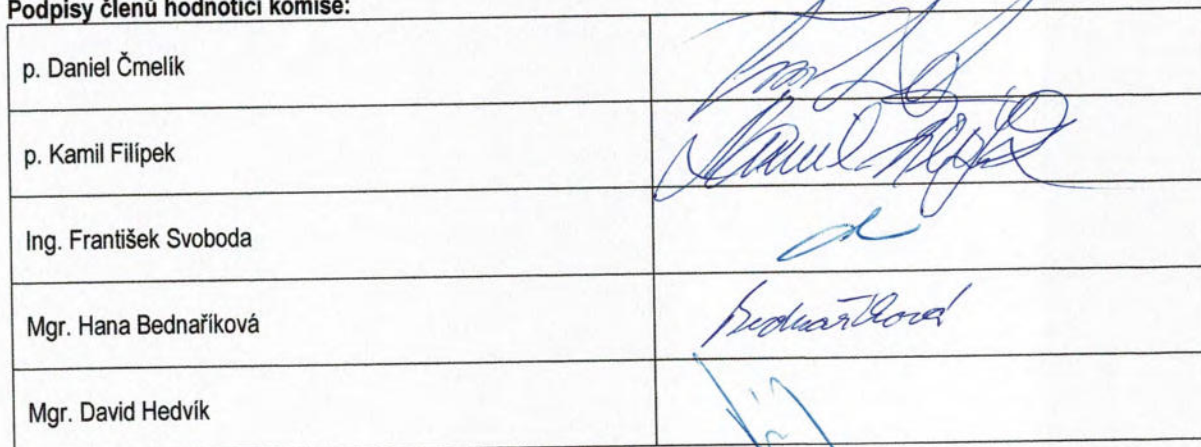 Podpisy členů hodnotící komise:
p. Daniel Čmelík
p. Kamil Filípek
Kamil
Ing. František Svoboda
Mgr. Hana Bednaříková
Bednaříková
Mgr. David Hedvík